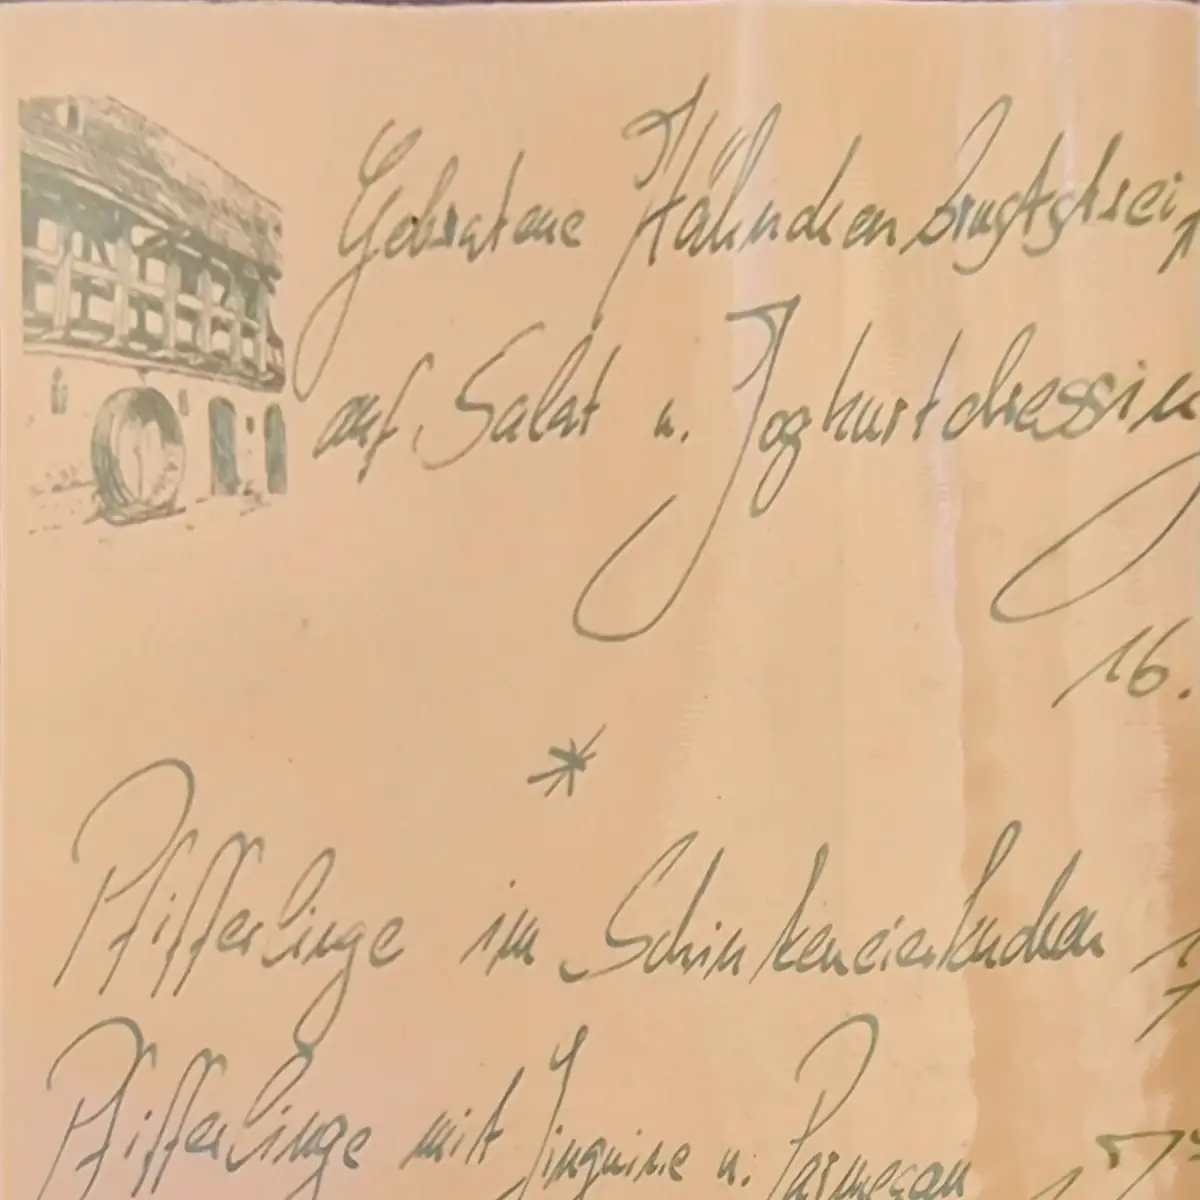 Gebratene Hähnchenbruststrei
auf Salat u. Joghurtdressin
16.
*
Pfifferlinge im Schinkeneierkuchen
Pfifferlinge mit Linguine u. Parmesan